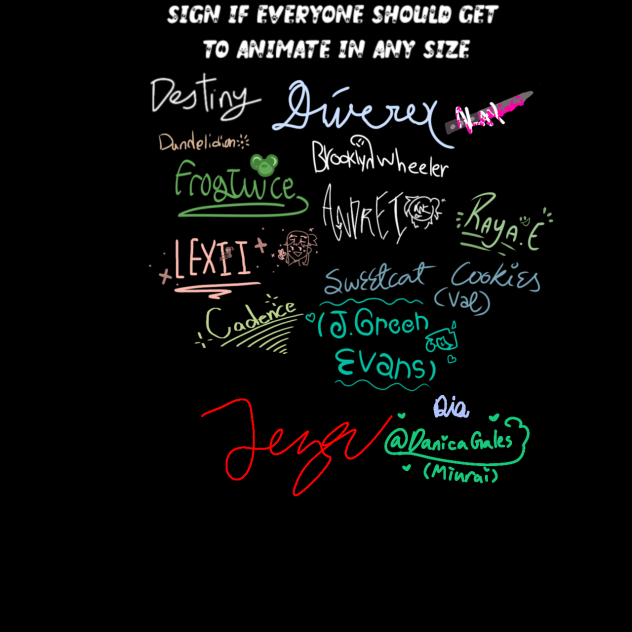 SIGN IF EVERYONE SHOULD GET
TO ANIMATE IN ANY SIZE
Destiny
Diverex
Dandelidian
BrooklynWheeler
FrogTwice
ANDREI
RAYA.E
LEXII
Sweetcat Cookies
(Val)
Cadence
(J.Green
Evans)
Dia
@DanicaGales
(Miurai)